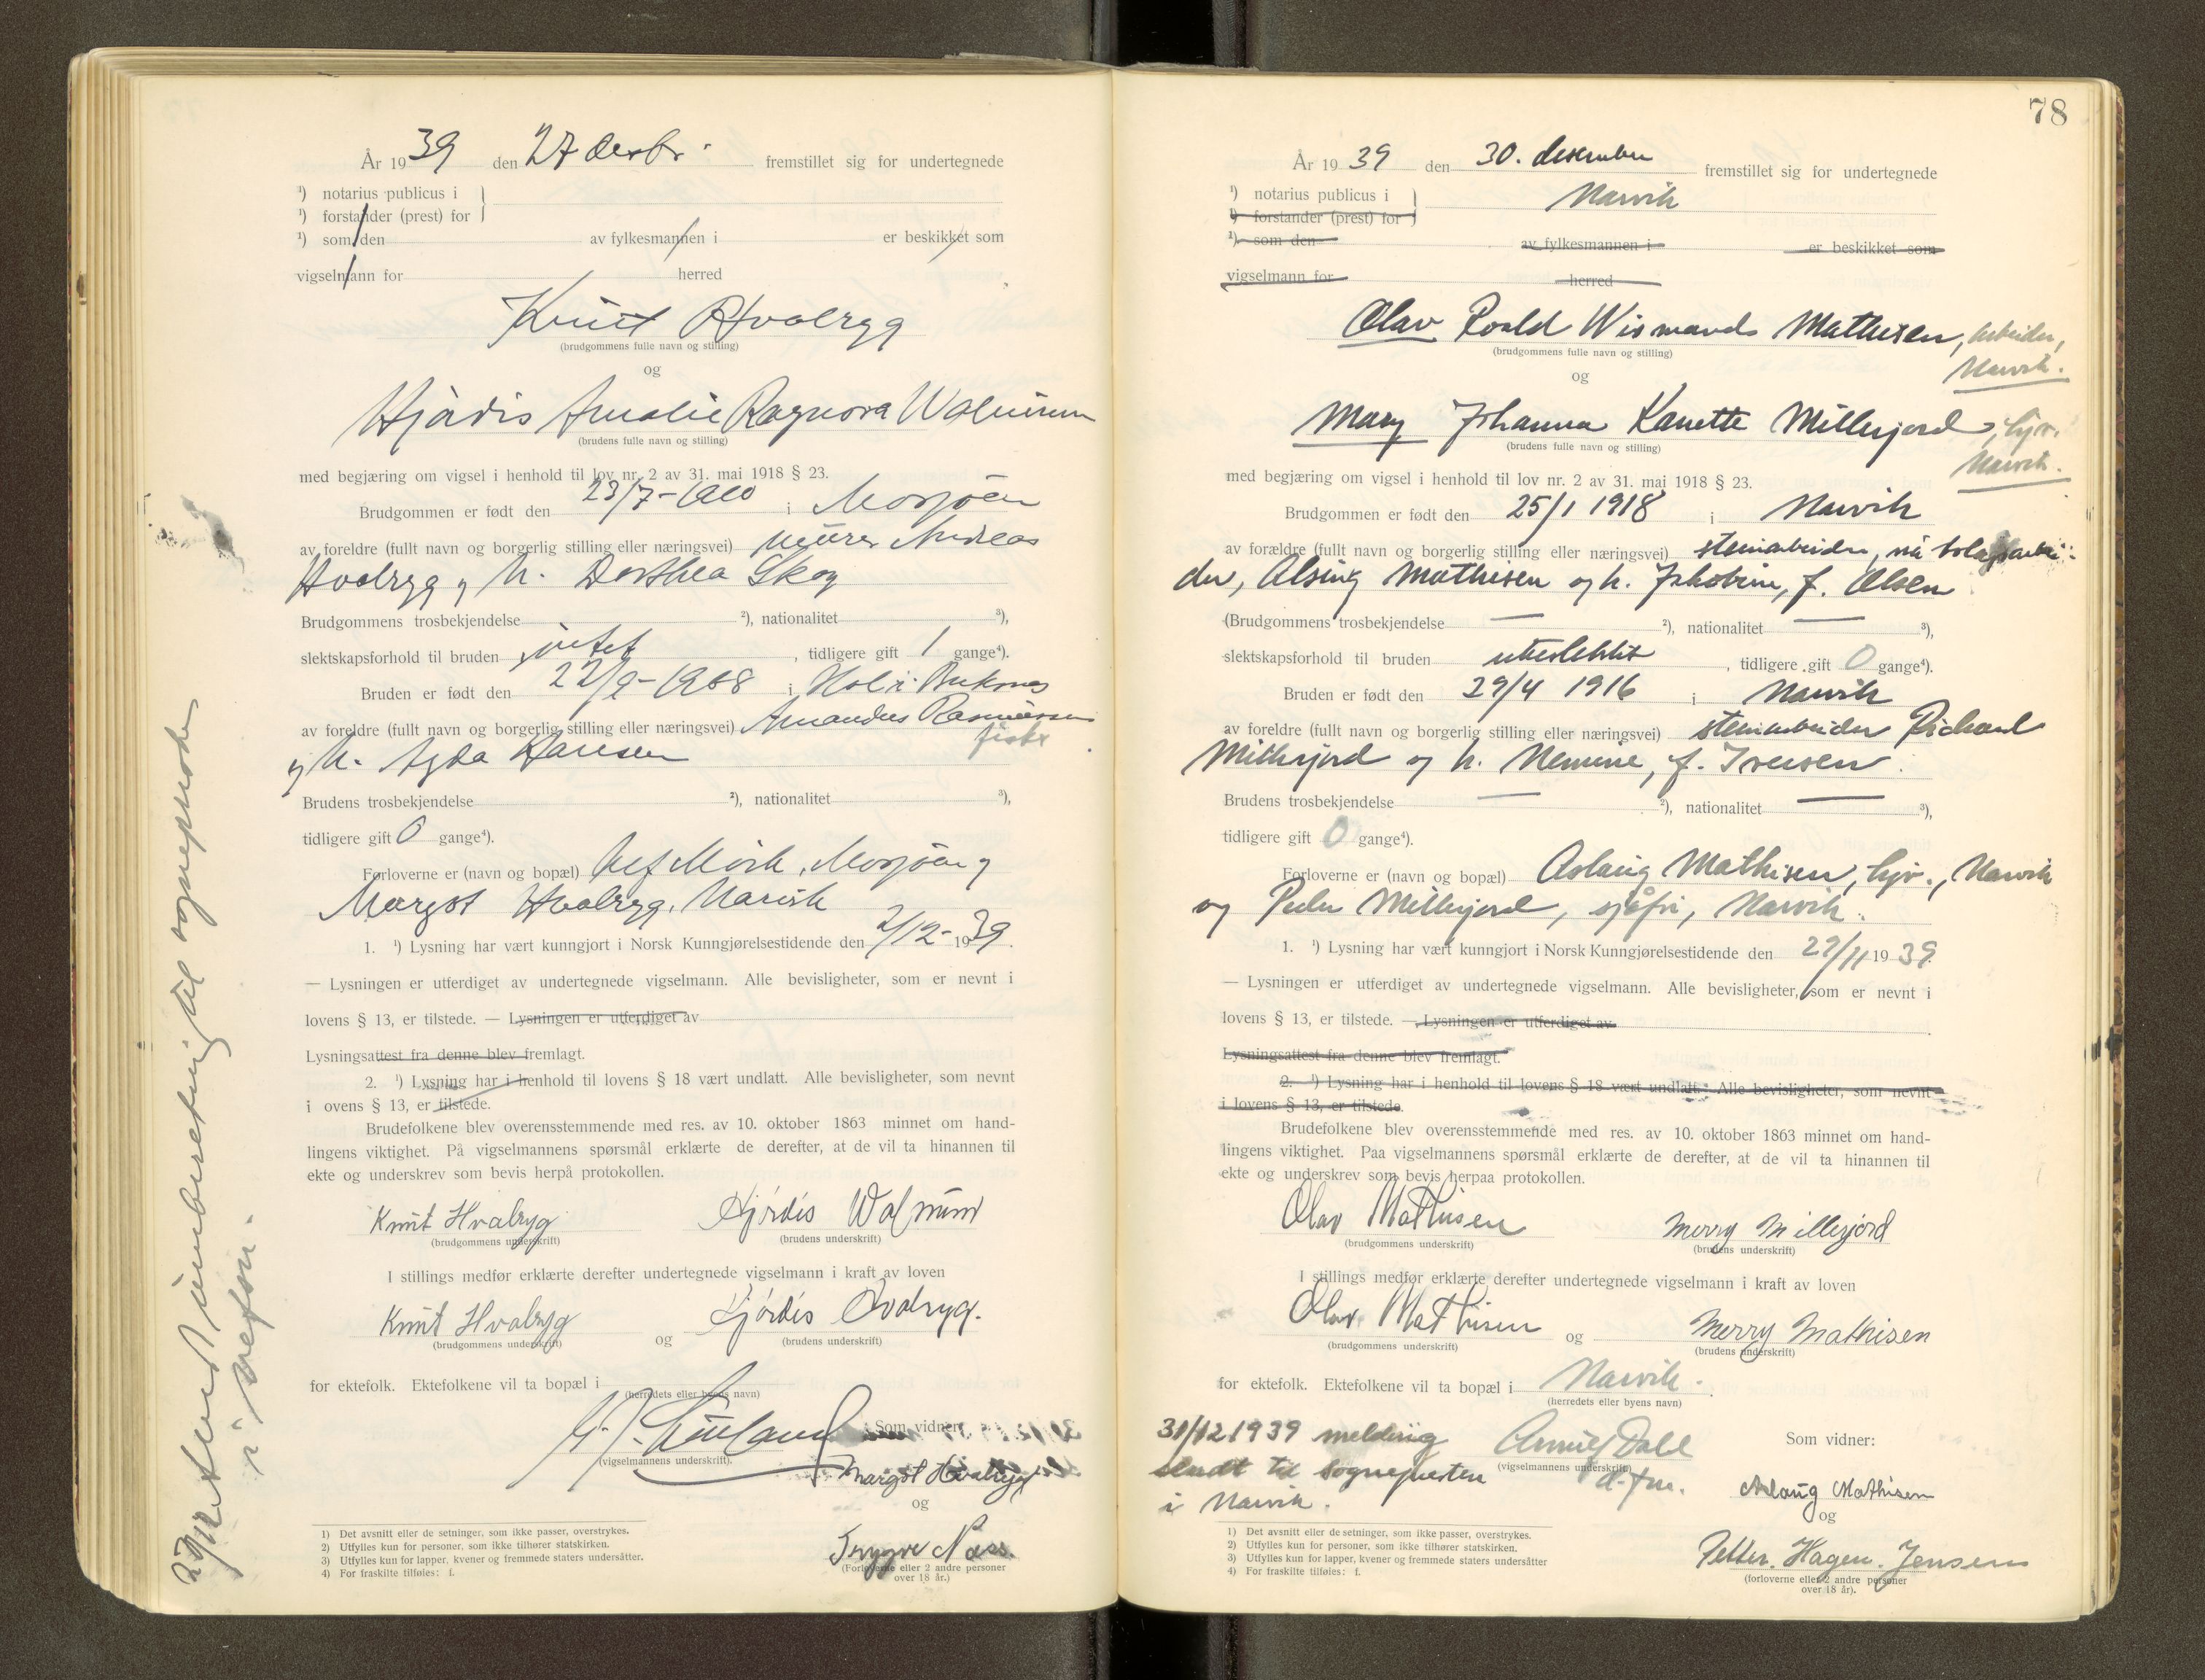 År 1939 den 27 desbr. fremstillet sig for undertegnede
¹) notarius publicus i }
¹) forstander (prest) for
¹) som den av fylkesmannen i er beskikket som
vigselmann for herred
Knut Hvalryg
(brudgommens fulle navn og stilling)
og
Hjørdis Amalie Ragnora Walnum
(brudens fulle navn og stilling)
med begjæring om vigsel i henhold til lov nr. 2 av 31. mai 1918 § 23.
Brudgommen er født den 23/7- i Mosjøen
av foreldre (fullt navn og borgerlig stilling eller næringsvei) murer Andreas
Hvalryg og h. Dorthea Skog
Brudgommens trosbekjendelse ²), nationalitet ³),
slektskapsforhold til bruden intet, tidligere gift 1 gange⁴).
Bruden er født den 22/9-1908 i Hol i Buksnes
av foreldre (fullt navn og borgerlig stilling eller næringsvei) Amandus Rasmussen
fisker
og h. Agda Hansen
Brudens trosbekjendelse ²), nationalitet ³),
tidligere gift 0 gange⁴).
Forloverne er (navn og bopæl) Mörk, Mosjøen og
Margot Hvalryg, Narvik
1. ¹) Lysning har vært kunngjort i Norsk Kunngjørelsestidende den 2/12- 1939.
— Lysningen er utferdiget av undertegnede vigselmann. Alle bevisligheter, som er nevnt i
lovens § 13, er tilstede. — Lysningen er utferdiget av
Lysningsattest fra denne blev fremlagt.
2. ¹) Lysning har i henhold til lovens § 18 vært undlatt. Alle bevisligheter, som nevnt
i ovens § 13, er tilstede.
Brudefolkene blev overensstemmende med res. av 10. oktober 1863 minnet om hand-
lingens viktighet. På vigselmannens spørsmål erklærte de derefter, at de vil ta hinannen til
ekte og underskrev som bevis herpå protokollen.
Knut Hvalryg Hjördis Walnum
(brudgommens underskrift) (brudens underskrift)
I stillings medfør erklærte derefter undertegnede vigselmann i kraft av loven
Knut Hvalryg og Hjördis Hvalryg.
(brudgommens underskrift) (brudens underskrift)
for ektefolk. Ektefolkene vil ta bopæl i
(herredets eller byens navn)
Som vidner:
(vigselmannens underskrift).
Margot Hvalryg
og
Trygve Næss.
(Forloverne eller 2 andre personer
over 18 år.)
1) Det avsnitt eller de setninger, som ikke passer, overstrykes.
2) Utfylles kun for personer, som ikke tilhører statskirken.
3) Utfylles kun for lapper, kvener og fremmede staters undersåtter.
4) For fraskilte tilføies: f.
29/12 sendt innberetning til sognepresten
i Vefsn.
78
År 1939 den 30. desember fremstillet sig for undertegnede
¹) notarius publicus i } Narvik
¹) forstander (prest) for
¹) som den av fylkesmannen i er beskikket som
vigselmann for herred
Olav Roald Wismands Mathisen, arbeider,
Narvik.
(brudgommens fulle navn og stilling)
og
Mary Johanna Kanette Millerjord, hjv.
Narvik.
(brudens fulle navn og stilling)
med begjæring om vigsel i henhold til lov nr. 2 av 31. mai 1918 § 23.
Brudgommen er født den 25/1 1918 i Narvik
av forældre (fullt navn og borgerlig stilling eller næringsvei) steinarbeider, nå bolagsarbei-
der, Alsing Mathisen og h. Jakobine, f. Olsen
(Brudgommens trosbekjendelse — ²), nationalitet — ³),
slektskapsforhold til bruden ubeslektet, tidligere gift 0 gange⁴).
Bruden er født den 29/4 1916 i Narvik
av foreldre (fullt navn og borgerlig stilling eller næringsvei) steinarbeider Richard
Millerjord og h. Nemine, f. Iversen.
Brudens trosbekjendelse — ²), nationalitet — ³),
tidligere gift 0 gange⁴).
Forloverne er (navn og bopæl) Aslaug Mathisen, hjv., Narvik
og Peder Millerjord, sjåfør, Narvik.
1. ¹) Lysning har vært kunngjort i Norsk Kunngjørelsestidende den 29/11 1939.
— Lysningen er utferdiget av undertegnede vigselmann. Alle bevisligheter, som er nevnt i
lovens § 13, er tilstede. — Lysningen er utferdiget av
Lysningsattest fra denne blev fremlagt.
2. ¹) Lysning har i henhold til lovens § 18 vært undlatt. Alle bevisligheter, som nevnt
i lovens § 13, er tilstede.
Brudefolkene blev overensstemmende med res. av 10. oktober 1863 minnet om hand-
lingens viktighet. Paa vigselmannens spørsmål erklærte de derefter, at de vil ta hinannen til
ekte og underskrev som bevis herpaa protokollen.
Olav Mathisen Merry Millerjord
(brudgommens underskrift) (brudens underskrift)
I stillings medfør erklærte derefter undertegnede vigselmann i kraft av loven
Olav Mathisen og Merry Mathisen
(brudgommens underskrift) (brudens underskrift)
for ektefolk. Ektefolkene vil ta bopæl i Narvik.
(herredets eller byens navn)
31/12 1939 melding
sendt til sognepresten
i Narvik.
Dahl
(vigselmannens underskrift)
d. fm.
Som vidner:
Aslaug Mathisen
og
Petter. Hagen. Jensen
(forloverne eller 2 andre personer
over 18 år).
1) Det avsnitt eller de setninger, som ikke passer, overstrykes.
2) Utfylles kun for personer, som ikke tilhører statskirken.
3) Utfylles kun for lapper, kvener og fremmede staters undersåtter
4) For fraskilte tilføies: f.